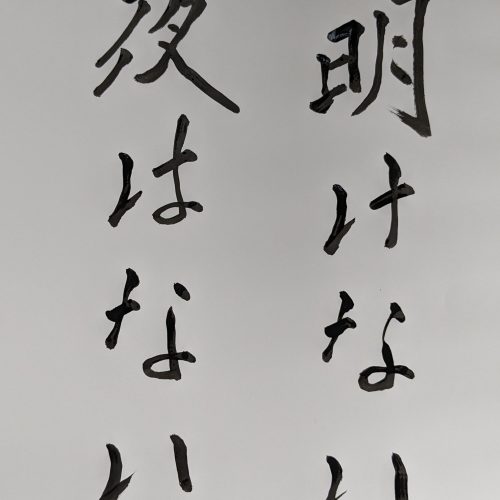 明けない
夜はない